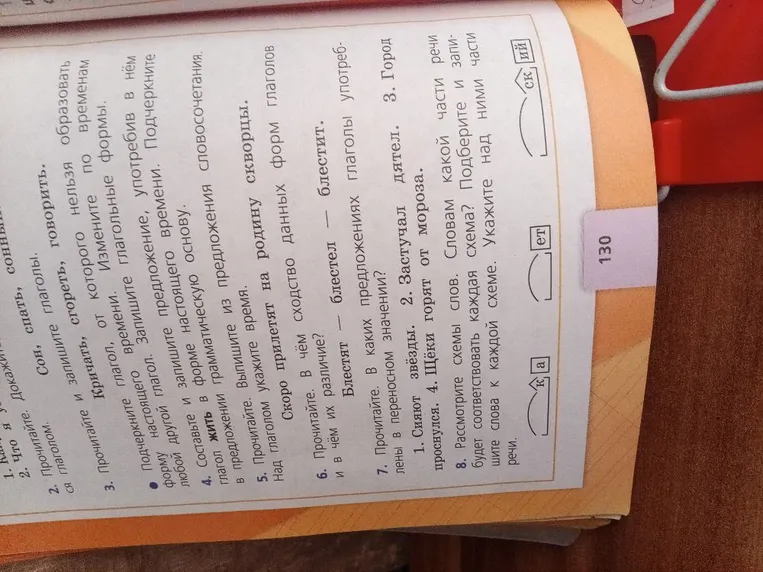 2. Что я
2. Прочитайте. Докажите
глаголом.
Сон, спать, сонный.
3. Прочитайте и запишите глаголы.
Кричать, сгореть, говорить.
Подчеркните глагол, от которого нельзя образовать
настоящего времени. Измените по временам
любой другой глагол. Запишите глагольные формы.
4. Составьте и запишите предложение, употребив в нём
глагол жить в форме настоящего времени. Подчеркните
в предложении грамматическую основу.
5. Прочитайте. Выпишите из предложения словосочетания.
Над глаголом укажите время.
Скоро прилетят на родину скворцы.
6. Прочитайте. В чём сходство данных форм глаголов
и в чём их различие?
Блестят — блестел — блестит.
7. Прочитайте. В каких предложениях глаголы употреб-
лены в переносном значении?
1. Сияют звёзды. 2. Застучал дятел. 3. Город
проснулся. 4. Щёки горят от мороза.
8. Рассмотрите схемы слов. Словам какой части речи
будет соответствовать каждая схема? Подберите и запи-
шите слова к каждой схеме. Укажите над ними части
речи.
к а
ет
ск ий
130